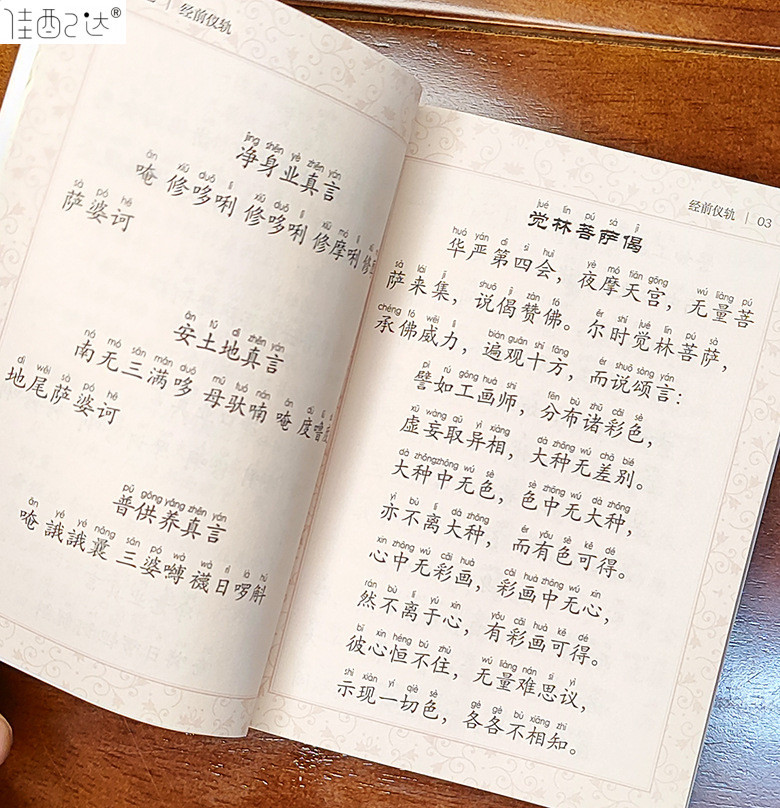 佳配达®
经前仪轨
jìng shēn yè zhēn yán
净身业真言
ǎn xiū duō lì xiū duō lì xiū mó lì xiū
唵 修哆唎 修哆唎 修摩唎 修
sà pó hē
萨婆诃
ān tǔ dì zhēn yán
安土地真言
nā mó sān mǎn duō mǔ tuó nán ǎn dù lǔ
南无三满哆 母驮喃 唵 度噜
dì wěi sà pó hē
地尾萨婆诃
pǔ gòng yǎng zhēn yán
普供养真言
ǎn yé yé nǎng sān pó wā wà rì là hū
唵 誐誐曩 三婆嚩 襪日啰斛
经前仪轨 | 03
jué lín pú sà jì
觉林菩萨偈
huá yán dì sì huì yè mó tiān gōng wú liàng pú
华严第四会，夜摩天宫，无量菩
sà lái jí shuō jì zàn fó ěr shí jué lín pú sà
萨来集，说偈赞佛。尔时觉林菩萨，
chéng fó wēi lì biàn guān shí fāng ér shuō sòng yán
承佛威力，遍观十方，而说颂言：
pì rú gōng huà shī fēn bù zhū cǎi sè
譬如工画师，分布诸彩色，
xū wàng qǔ yì xiàng dà zhǒng wú chā bié
虚妄取异相，大种无差别。
dà zhǒng zhōng wú sè sè zhōng wú dà zhǒng
大种中无色，色中无大种，
yì bù lí dà zhǒng ér yǒu sè kě dé
亦不离大种，而有色可得。
xīn zhōng wú cǎi huà cǎi huà zhōng wú xīn
心中无彩画，彩画中无心，
rán bù lí yú xīn yǒu cǎi huà kě dé
然不离于心，有彩画可得。
bǐ xīn héng bú zhù wú liàng nán sī yì
彼心恒不住，无量难思议，
shì xiàn yí qiè sè gè gè bù xiāng zhī
示现一切色，各各不相知。